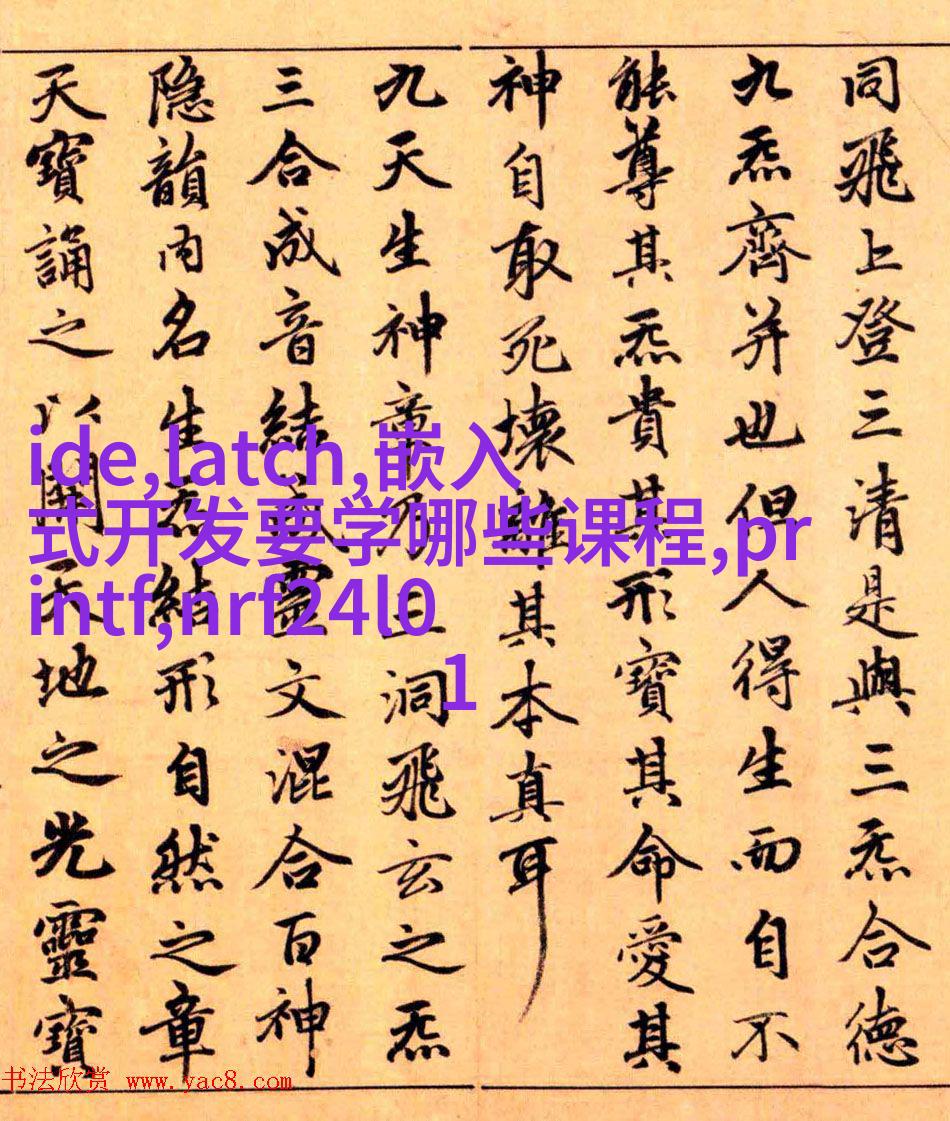 同飛上登三清是與三炁合德
九炁齊并也但人得生而自不
能尊其炁貴其形寶其命愛其
神自取死壞離其本真耳
九天生神章乃三洞飛玄之炁
三合成音結成靈文混合百神
隐韻內名生炁結形自然之章
天寶誦之以開天地之光靈寶
ide,latch,嵌入
式开发要学哪些课程,pr
intf,nrf24l0
1
书法欣赏 www.yac8.com